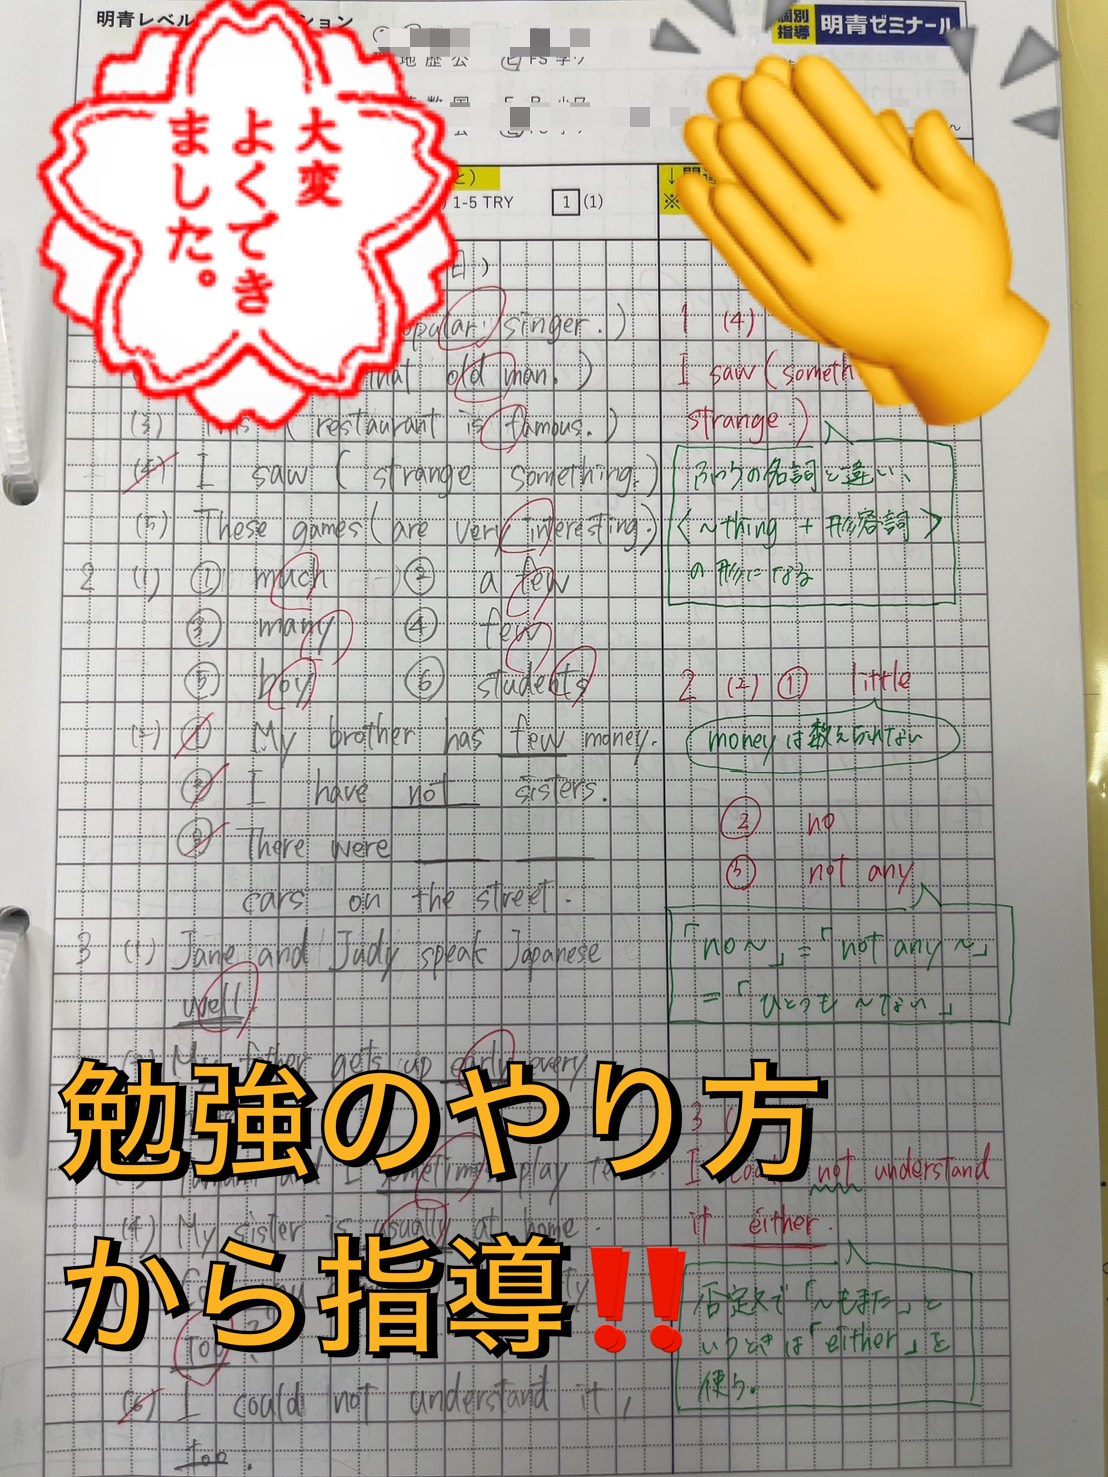 明青レベル
ション
個別
指導
明青ゼミナール
地 歴 公
大変
よくでき
ました。
1-5 TRY
1 (1)
singer.)
that old man.)
(3) This (restaurant is famous.)
(4) I saw (strange something.)
(5) These games (are very interesting.)
2 (1) ① much ② a few
③ many ④ few
⑤ boy ⑥ students
(2) ① My brother has few money.
② I have not sisters.
③ There were
cars on the street.
3 (1) Jane and Judy speak Japanese
well.
My father gets up early every
sometimes play
(4) My sister is usually at home.
too?
(6) I could not understand it,
too.
1 (4)
I saw (someth
strange.)
ふつうの名詞と違い、
〈~thing + 形容詞〉
の形になる
2 (2) ① little
moneyは数えられない
② no
③ not any
「no~」=「not any~」
=「ひとつも~ない」
3
I could not understand
it either.
否定文で「~もまた」と
いうときは「either」を
使う。
勉強のやり方
から指導‼